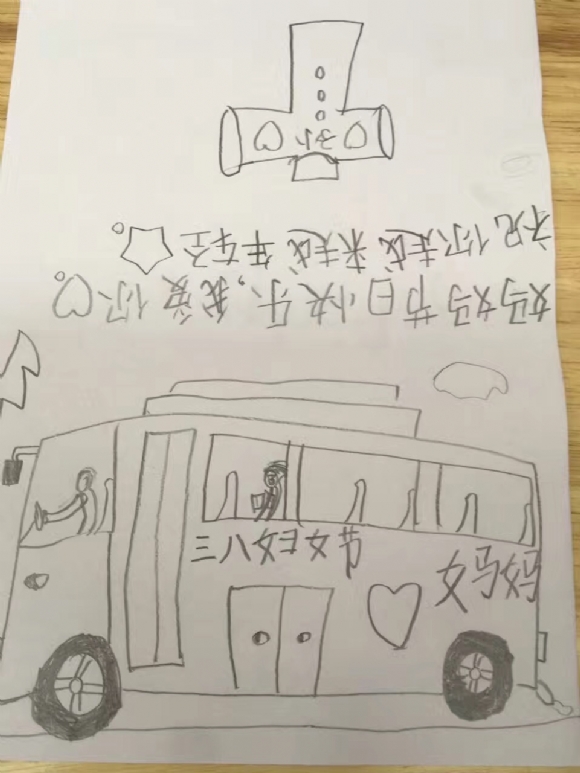 妈妈节日快乐,我爱你。
祝你越来越年轻。
三八妇女节
妈妈